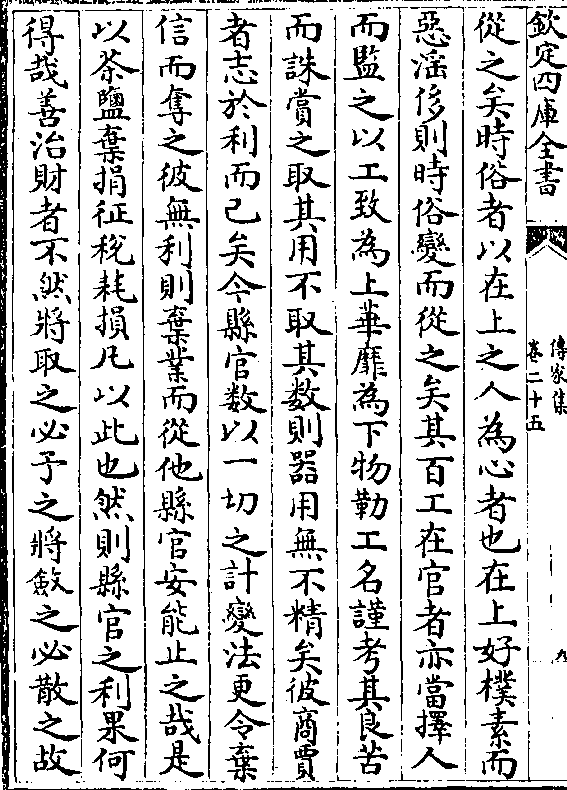 欽定四庫全書
傳家集
卷二十五
九
從之矣時俗者以在上之人為心者也在上好樸素而
惡滛侈則時俗變而從之矣其百工在官者亦當擇人
而監之以工致為上華靡為下物勒工名謹考其良苦
而誅賞之取其用不取其數則器用無不精矣彼商賈
者志於利而已矣今縣官數以一切之計變法更令棄
信而奪之彼無利則棄業而從他縣官安能止之哉是
以茶鹽棄捐征稅耗損凡以此也然則縣官之利果何
得哉善治財者不然將取之必予之將斂之必散之故